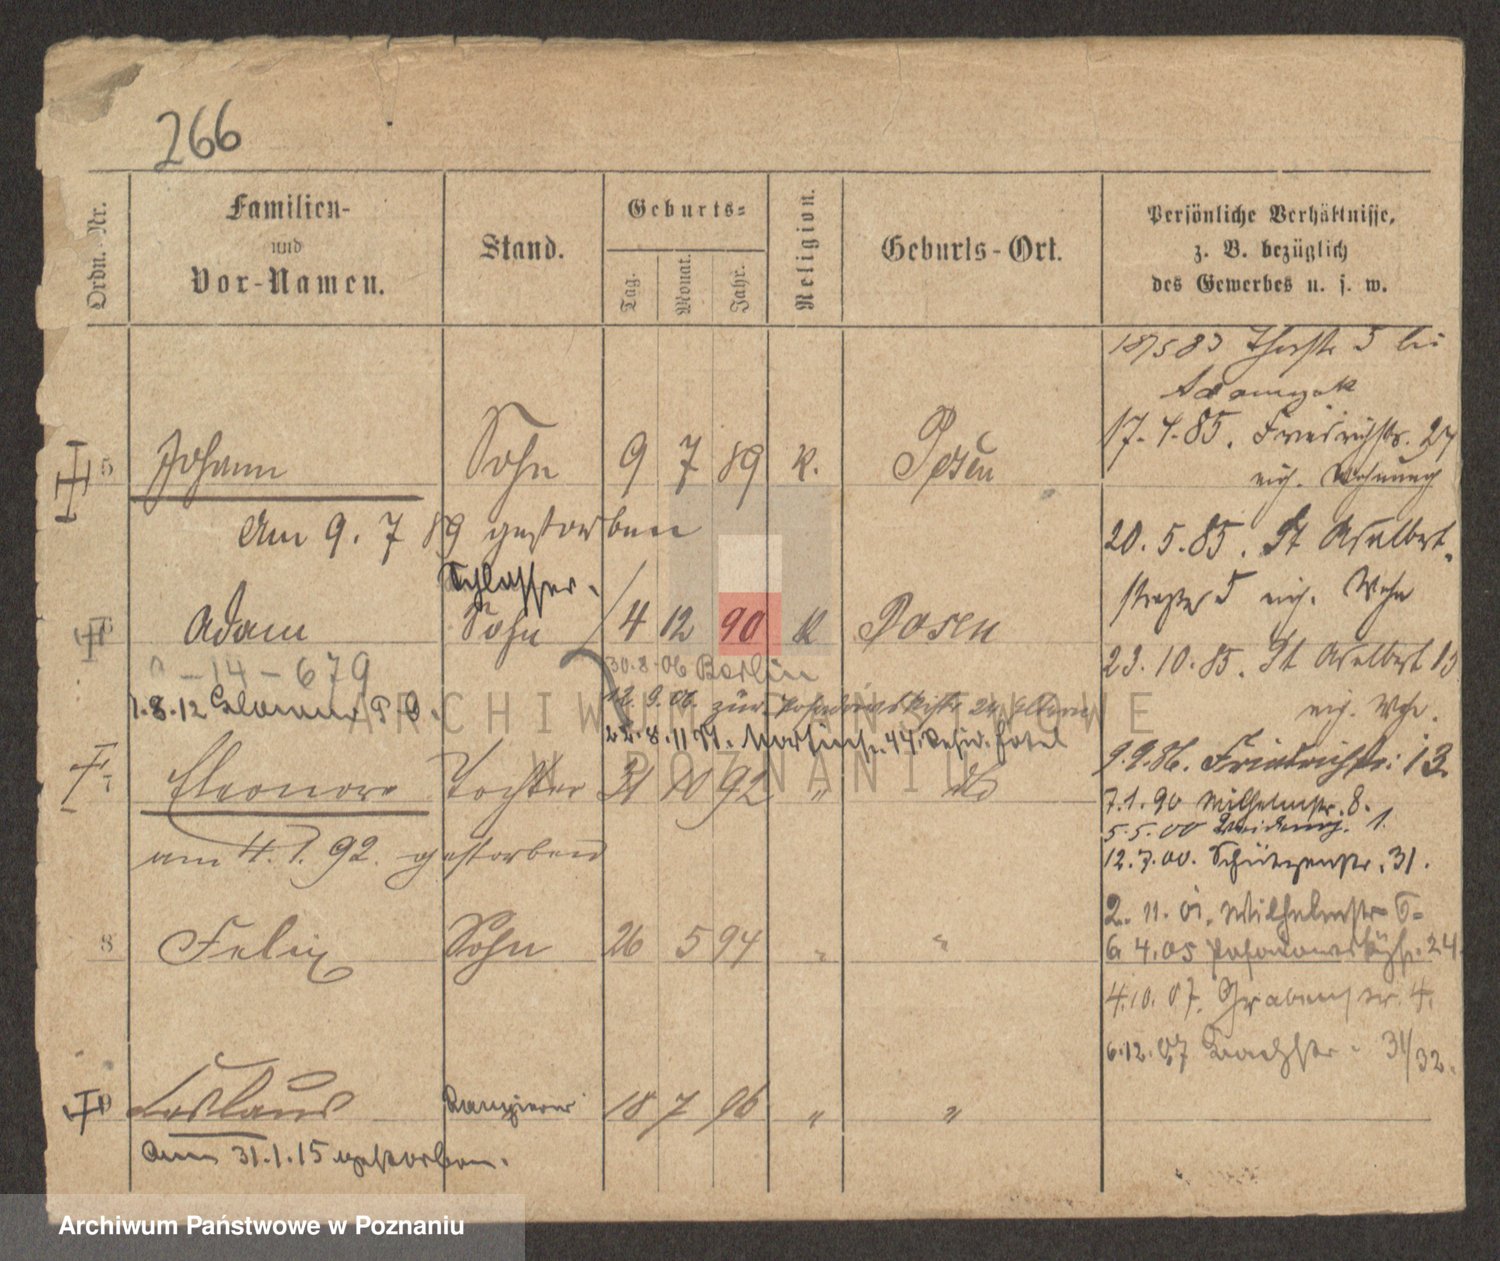 266
Ordn. Nr.
Familien-
und
Vor-Namen.
Stand.
Geburts-
Tag.
Monat.
Jahr.
Religion.
Geburts-Ort.
Persönliche Verhältnisse,
z. B. bezüglich
des Gewerbes u. s. w.
5 Johann Sohn 9 7 89 K. Posen
Am 9. 7 89 gestorben
Schlosser
Adam Sohn 4 12 90 K Posen
-14-679
30.8.06 Berlin
1.8.12
12. 9. 06. zur 24
22.8.11 44.
7 Eleonore Tochter 31 10 92 " do
am 4. 1. 92. gestorben
8 Felix Sohn 26 5 94 " "
9 Ladislaus 18 7 96 " "
Am 31.1.15 gestorben.
18/5 83 5 bei
Adamczak
17. 4. 85. Friedrichstr. 27
eig. Wohnung
20. 5. 85. St Adalbert-
strasse 5 eig. Wohn
23. 10. 85. St Adalbert 13
eig. Whn.
9. 9. 86. Friedrichstr. 13.
7. 1. 90 Wilhelmstr. 8.
5. 5. 00 1.
12. 7. 00. Schützenstr. 31.
2. 11. 01. Wilhelmstr
6 4. 05 24
4. 10. 07. Grabenstr. 4.
6. 12. 07 31/32.
ARCHIWUM PAŃSTWOWE
W POZNANIU
Archiwum Państwowe w Poznaniu